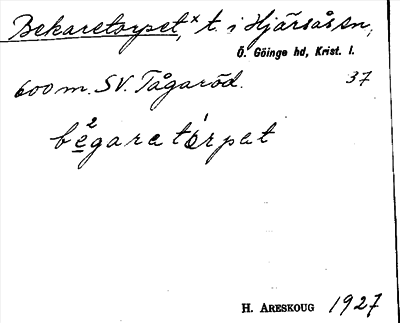 Bekaretorpet,x t. i Hjärsås sn,
Ö. Göinge hd, Krist. l.
600 m. SV. Tågaröd. 37
be2garetórpet
H. ARESKOUG 1927